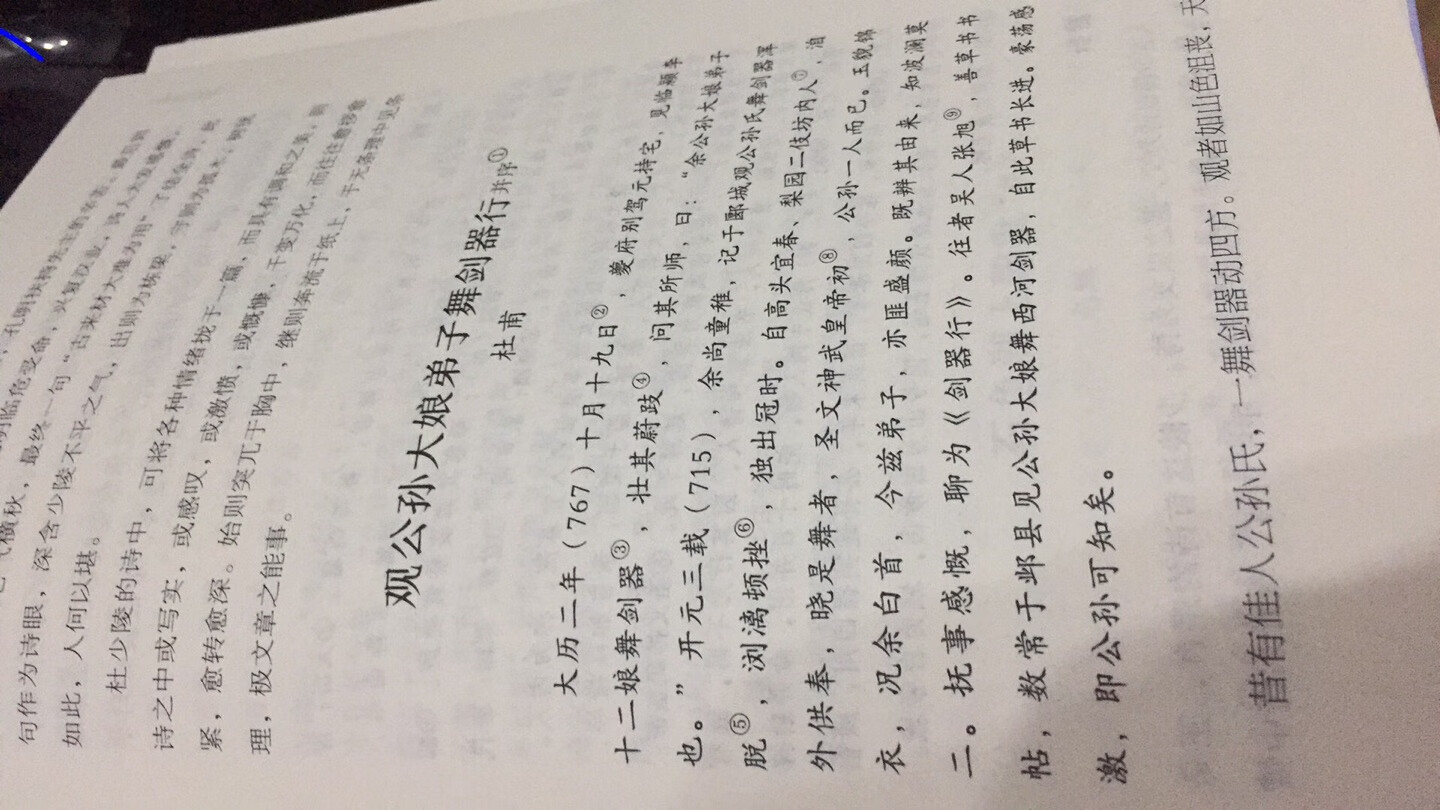 句作为诗眼，深含少陵不平之气，出则为
如此，人何以堪。
杜少陵的诗中，可将各种情绪拢于一篇，而具有调和之美，
诗之中或写实，或感叹，或激愤，或慷慨，千变万化，而往往愈移愈
紧，愈转愈深。始则突兀于胸中，继则奔流于纸上，于无条理中见条
理，极文章之能事。
观公孙大娘弟子舞剑器行并序①
杜甫
大历二年（767）十月十九日②，夔府别驾元持宅，见临颍李
十二娘舞剑器③，壮其蔚跂④，问其所师，曰：“余公孙大娘弟子
也。”开元三载（715），余尚童稚，记于郾城观公孙氏舞剑器浑
脱⑤，浏漓顿挫⑥，独出冠时。自高头宜春、梨园二伎坊内人⑦，洎
外供奉，晓是舞者，圣文神武皇帝初⑧，公孙一人而已。玉貌锦
衣，况余白首，今兹弟子，亦匪盛颜。既辨其由来，知波澜莫
二。抚事感慨，聊为《剑器行》。往者吴人张旭⑨，善草书书
帖，数常于邺县见公孙大娘舞西河剑器，自此草书长进。豪荡感
激，即公孙可知矣。
昔有佳人公孙氏，一舞剑器动四方。观者如山色沮丧，天